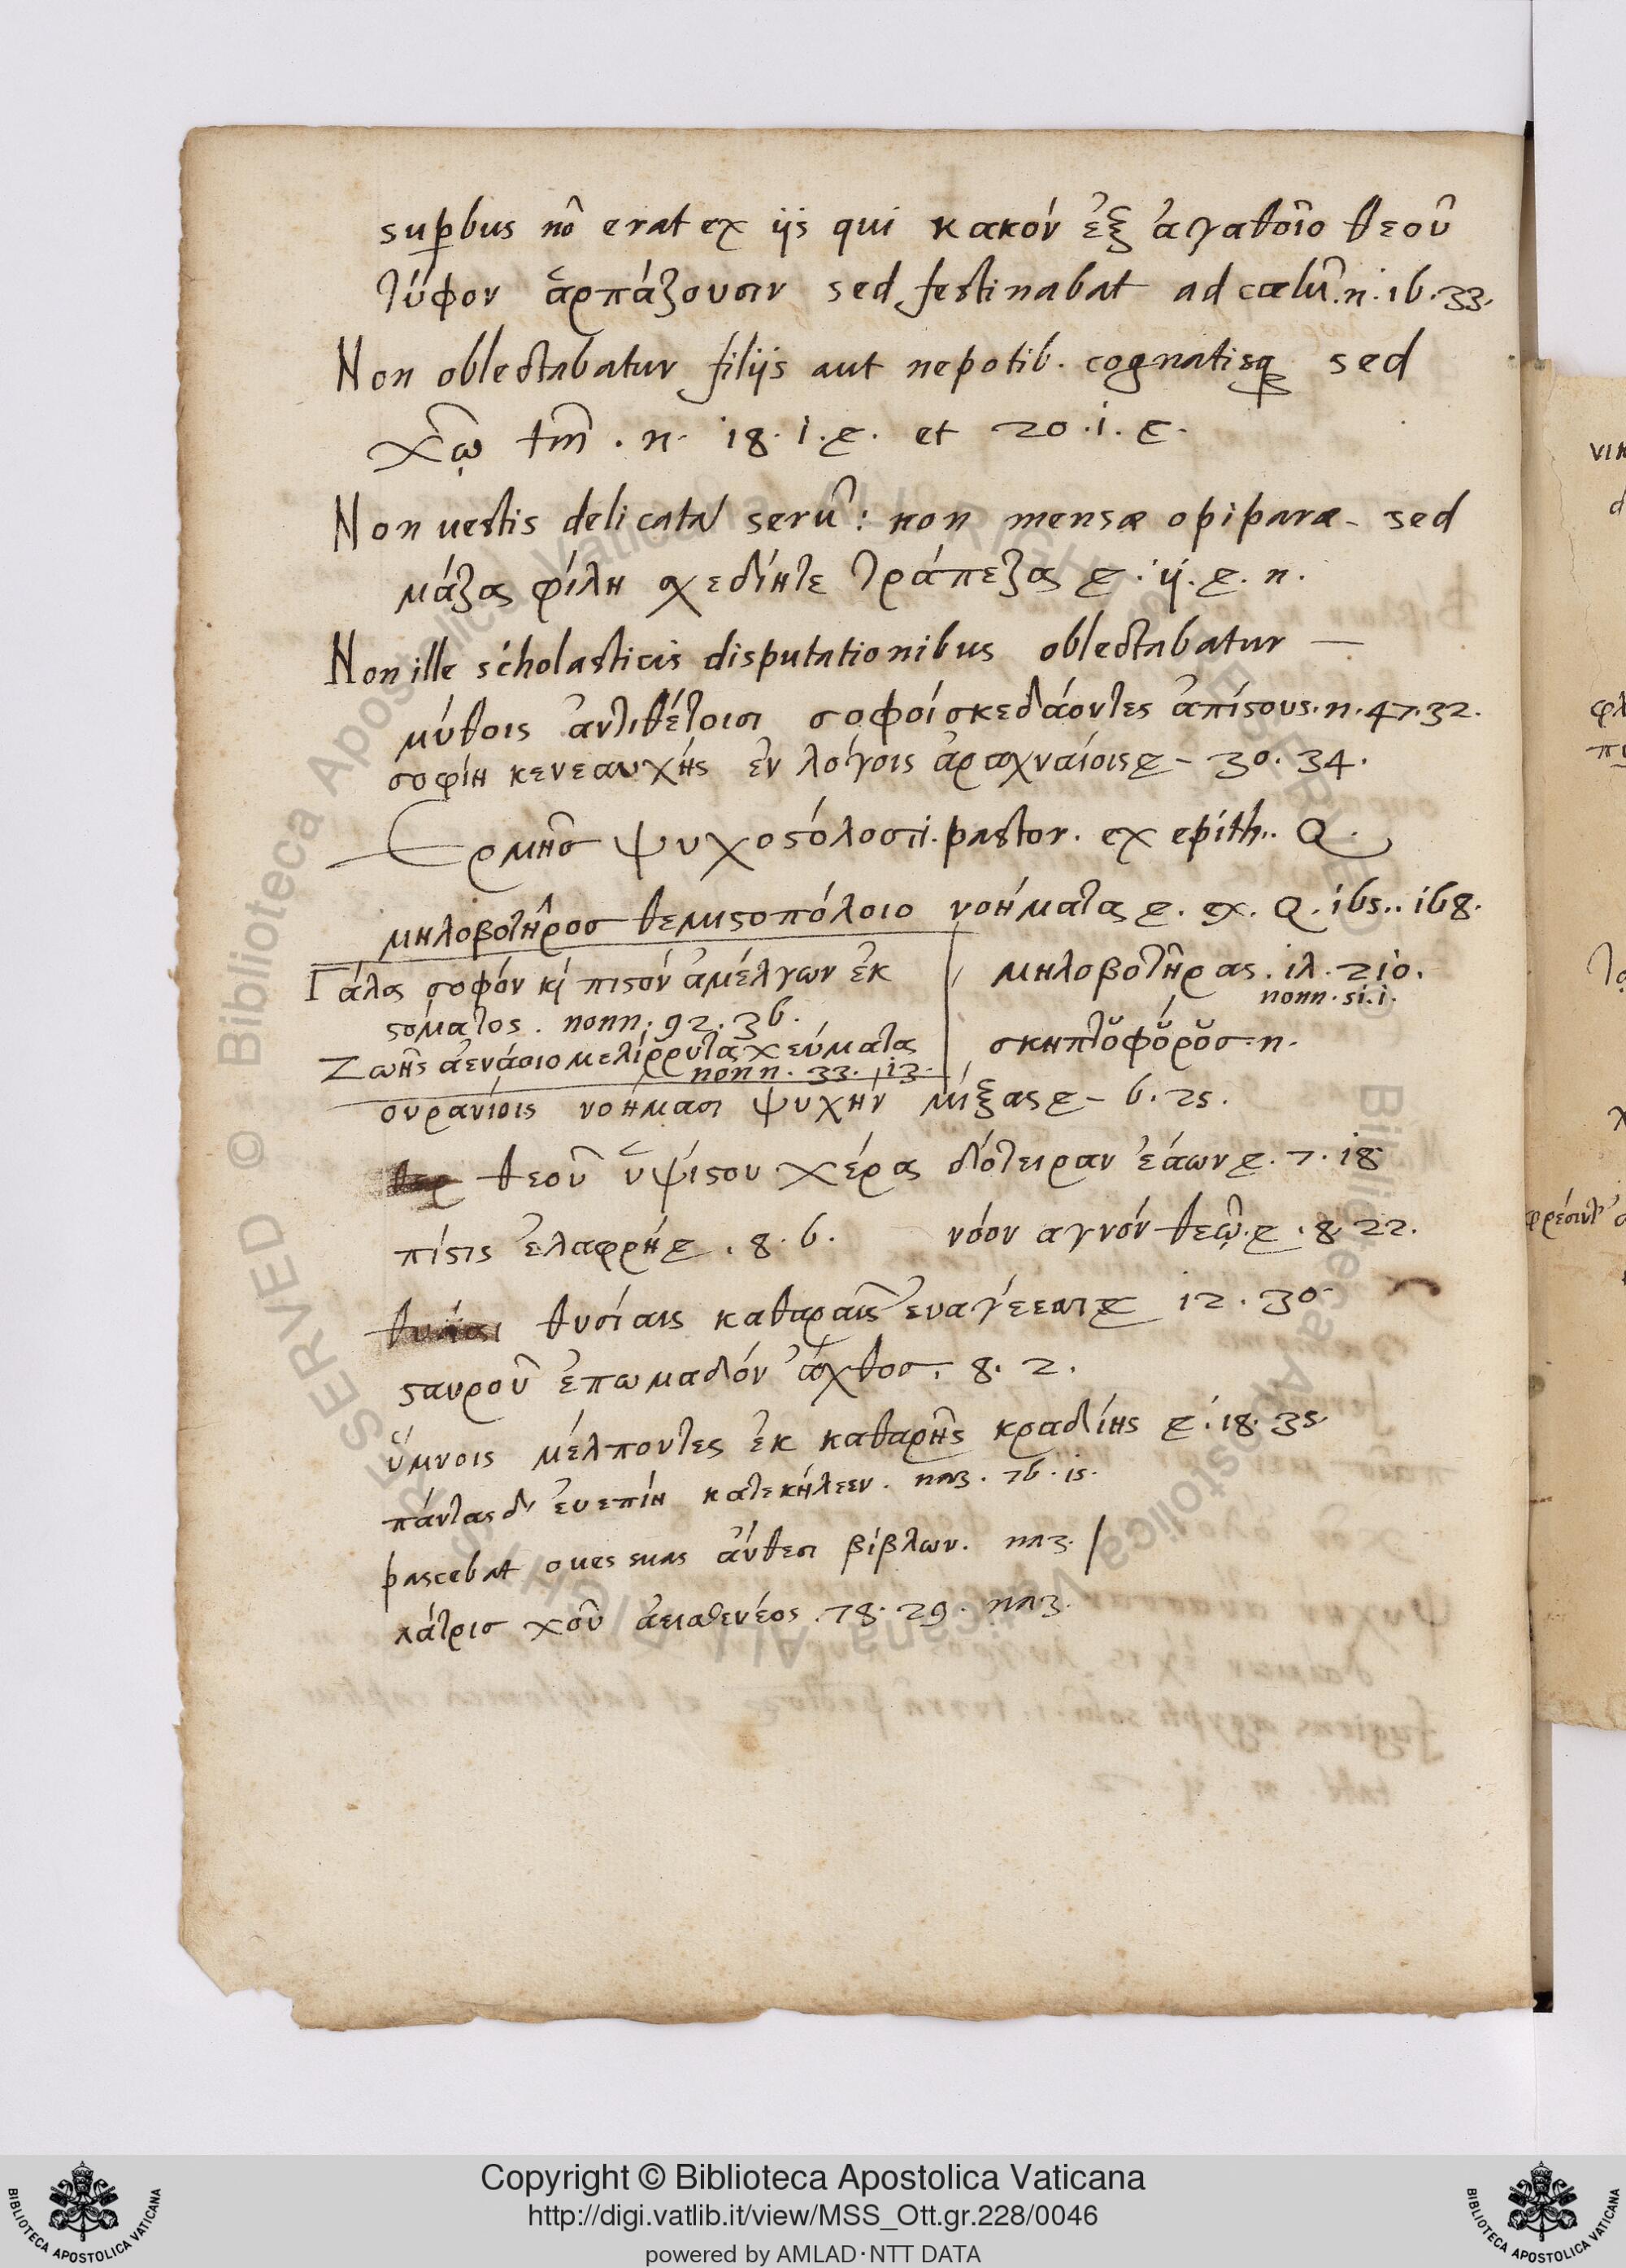 supbus no erat ex ijs qui κακόν ἐξ ἀγαθοῖο θεοῦ
τύφον ἁρπάζουσιν sed festinabat ad cœlū. n. 16. 33.
Non oblectabatur filijs aut nepotib. cognatisq sed
χῶ tm̄ . n. 18. 1. et 20. 1.
Non uestis delicata serū : non mensæ opiparæ - sed
μάζας φίλη σχεδίητε τράπεζας ij. n.
Non ille scholasticis disputationibus oblectabatur —
μύθοις ἀντιθέτοισι σοφοί σκεδάοντες ἀπίςους. n. 47. 32.
σοφίη κενεαυχής ἐν λόγοις ἀραχναίοις - 30. 34.
Ερμῆσ ψυχοςόλοσ i. pastor. ex epith. Q.
μηλοβοτῆροσ θεμιςοπόλοιο νοήματα ex. Q. 165.. 168.
Γάλα σοφόν κὶ πιςόν ἀμέλγων ἐκ
ςόματος . nonn. 92. 36.
μηλοβοτῆρας. ιλ. 210.
nonn. 51. 1.
Ζωῆς ἀενάοιο μελίῤῥυτα χεύματα
nonn. 33. 13.
σκηπτοφόροσ. n.
ουρανίοις νοήμασι ψυχήν μίξας - 6. 25.
θεοῦ ὑψίςου χέρα δότειραν ἐάων . 7. 18
πίςις ἐλαφρή . 8. 6. νόον αγνόν θεῷ . 8. 22.
θυσίαις καθαραῖς 12. 30
ςαυροῦ ἐπωμαδόν ἄχθοσ. 8. 2.
ὕμνοις μέλποντες ἐκ καθαρῆς κραδίης . 18. 35.
πάντας δ' ἐυεπίη κατεκήλεεν. naz. 76. 15.
pascebat oues suas ἄνθεσι βίβλων. naz.
λάτρισ χοῦ ἀειαθενέος . 78. 29. naz.
Copyright © Biblioteca Apostolica Vaticana
http://digi.vatlib.it/view/MSS_Ott.gr.228/0046
powered by AMLAD·NTT DATA